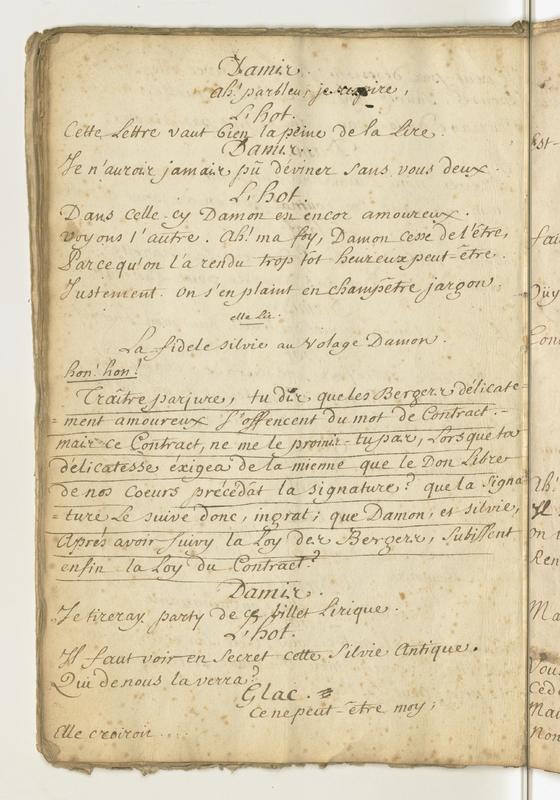 Damir.
ah! parbleu, je respire,
L'hot.
Cette Lettre vaut bien la peine de la Lire.
Damir.
Je n'auroir jamair pû déviner sans vous deux.
L'hot.
Dans celle-cy Damon est encor amoureux.
voyons l'autre. Ah! ma foy, Damon cesse de l'être,
Parcequ'on l'a rendu trop tôt heureux peut-être.
Justement. on s'en plaint en champêtre jargon,
elle Lit.
La fidele silvie au Volage Damon.
hon! hon!
Traître parjure, tu dir que les Bergerr délicate-
=ment amoureux s'offencent du mot de Contract.-
mair ce Contract, ne me le promir-tu par, Lorsque ta
délicatesse éxigea de la mienne que le Don Libre
de nos Coeurs précédat la signature? que la signa-
=ture Le suive donc, ingrat; que Damon, et silvie,
Aprés avoir suivy la Loy der Bergerr, subissent
enfin la Loy du Contract?
Damir.
Je tireray party de ce billet Lirique.
L'hot.
Il faut voir en secret cette Silvie Antique.
Qui de nous la verra?
Glac.
Ce ne peut-être moy;
Elle croiroit....
Est-
Ah!
Ren
Ma
Vous
Mai
Non